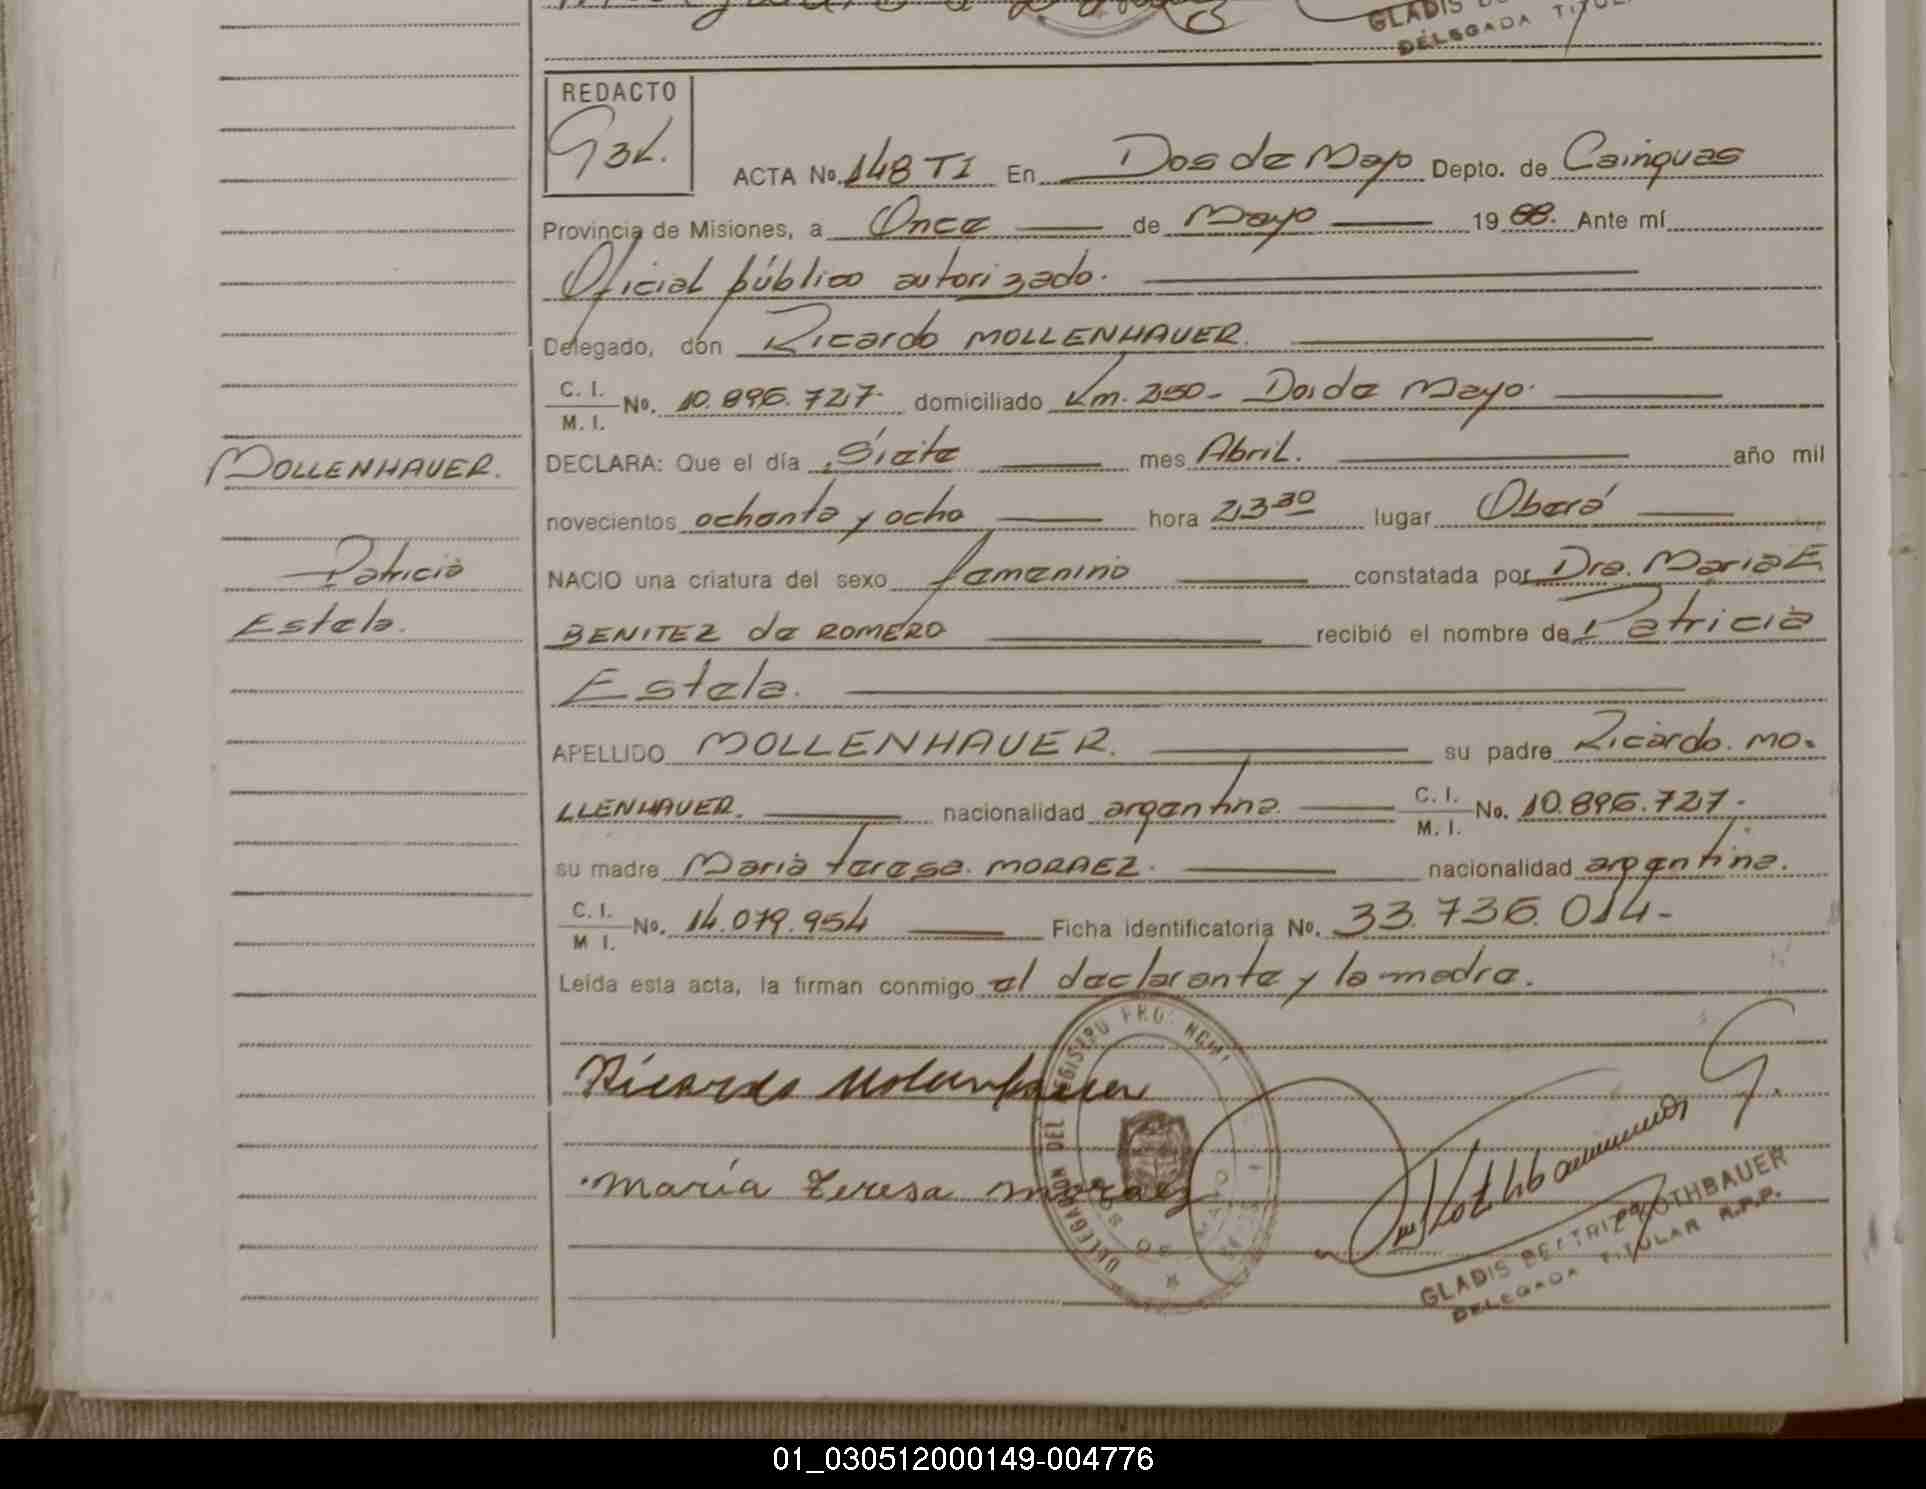 GLADIS
DELEGADA TITULAR
REDACTO
ACTA No. 148 TI En Dos de Mayo Depto. de Cainguas
Provincia de Misiones, a Once de Mayo 1988. Ante mí
Oficial público autorizado.
Delegado, don Ricardo MOLLENHAUER.
C. I.
M. I. No. 10.896.727. domiciliado Km. 250 - Dos de Mayo.
MOLLENHAUER.
DECLARA: Que el día Siete mes Abril. año mil
novecientos ochenta y ocho hora 23 30 lugar Oberá
Patricia
NACIO una criatura del sexo femenino constatada por Dra. Maria E.
Estela.
BENITEZ de ROMERO recibió el nombre de Patricia
Estela.
APELLIDO MOLLENHAUER. su padre Ricardo. MO-
LLENHAUER. nacionalidad argentina. C. I.
M. I. No. 10.896.727.-
su madre Maria teresa. MORAEZ. nacionalidad argentina.
C. I.
M I. No. 14.079.954 Ficha identificatoria No. 33.736.014-
Leída esta acta, la firman conmigo el declarante y la madre.
Ricardo
María Teresa Moraez
DELEGACION DEL REGISTRO
GLADIS BEATRIZ ROTHBAUER
DELEGADA TITULAR R.P.P.
01_030512000149-004776